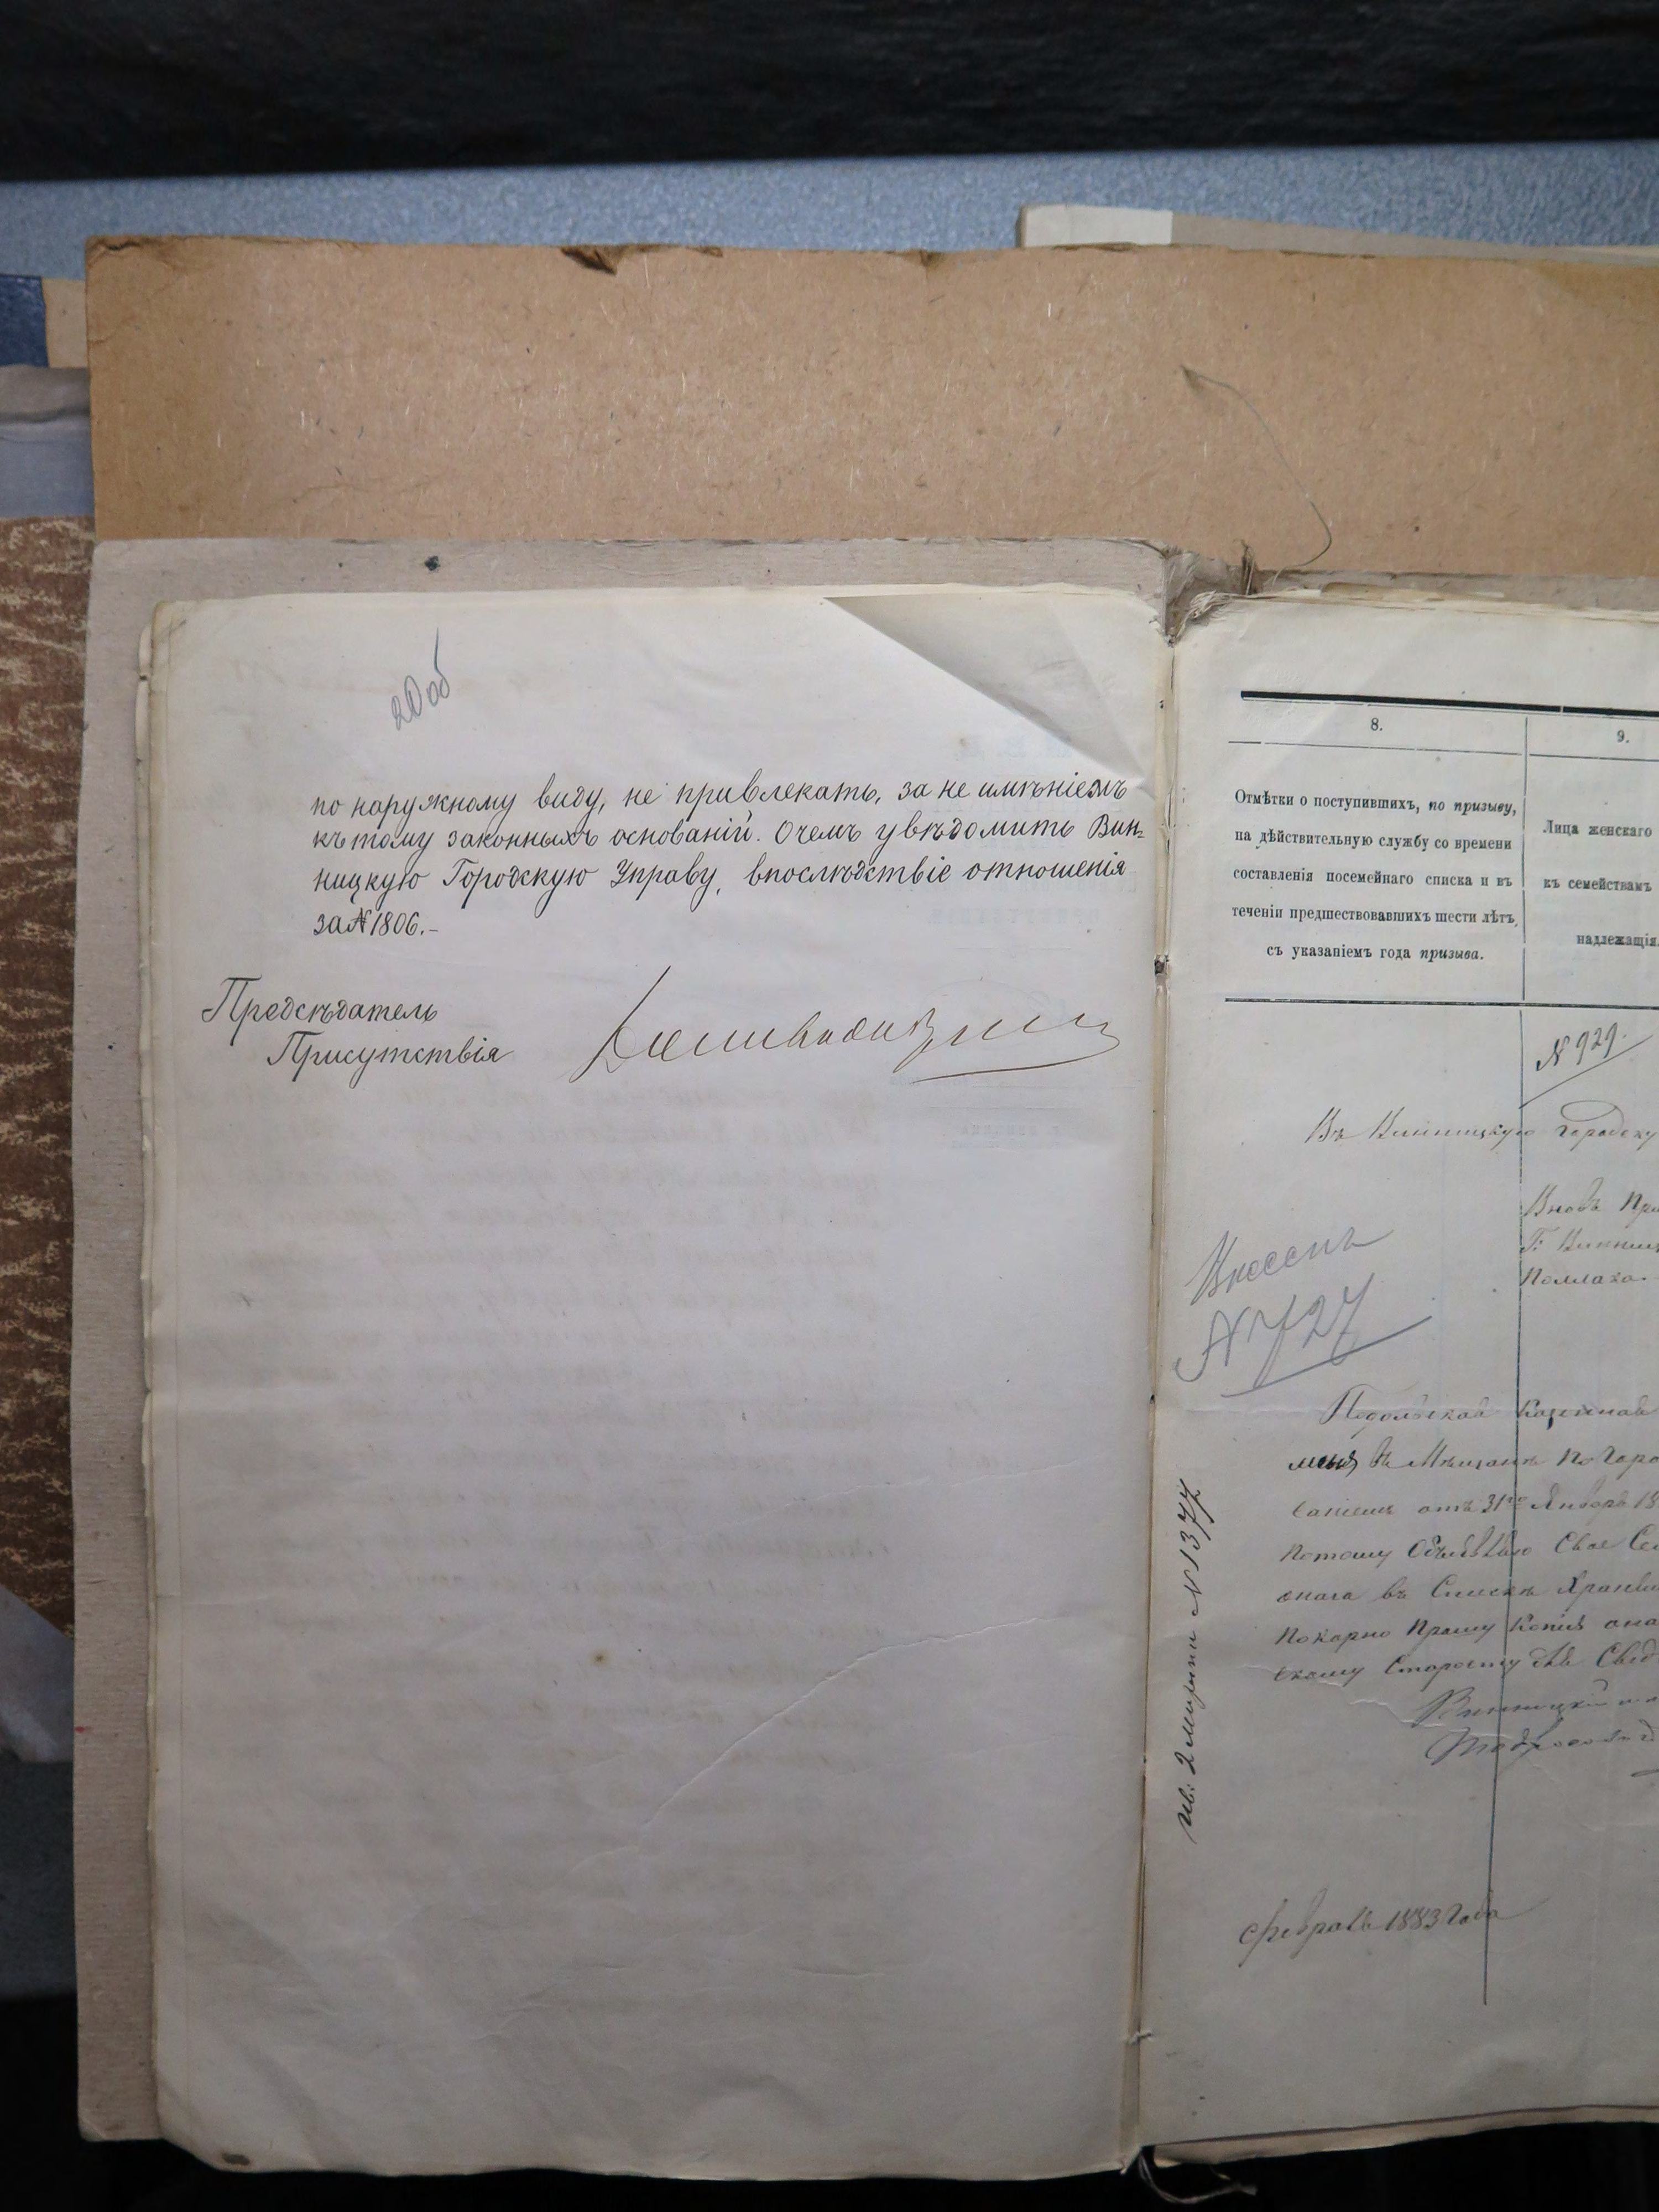 20 об
по наружному виду, не привлекать, за не имѣніемъ
къ тому законныхъ основаній. О чемъ увѣдомить Вин=
ницкую Городскую Управу, впослѣдствіе отношенія
за № 1806.-
Предсѣдатель
Присутствія
8.
9.
Отмѣтки о поступившихъ, по призыву,
на дѣйствительную службу со времени
составленія посемейнаго списка и въ
теченіи предшествовавшихъ шести лѣтъ,
съ указаніемъ года призыва.
Лица женскаго
къ семействамъ
надлежащія
№ 929.
Въ Винницкую Городску
Вновь При
Г. Винниц
Внесенъ
№ 727
Подольская Казенная
меня въ Мѣщане по Горо
отъ 31го Января 18
потому Объявляю Свое Се
онаго въ Списокъ
покорно прошу Копію она
скому Старосту для Свѣд
Винницкій
ис: 2 марта № 1377
Февраля 1883 Года